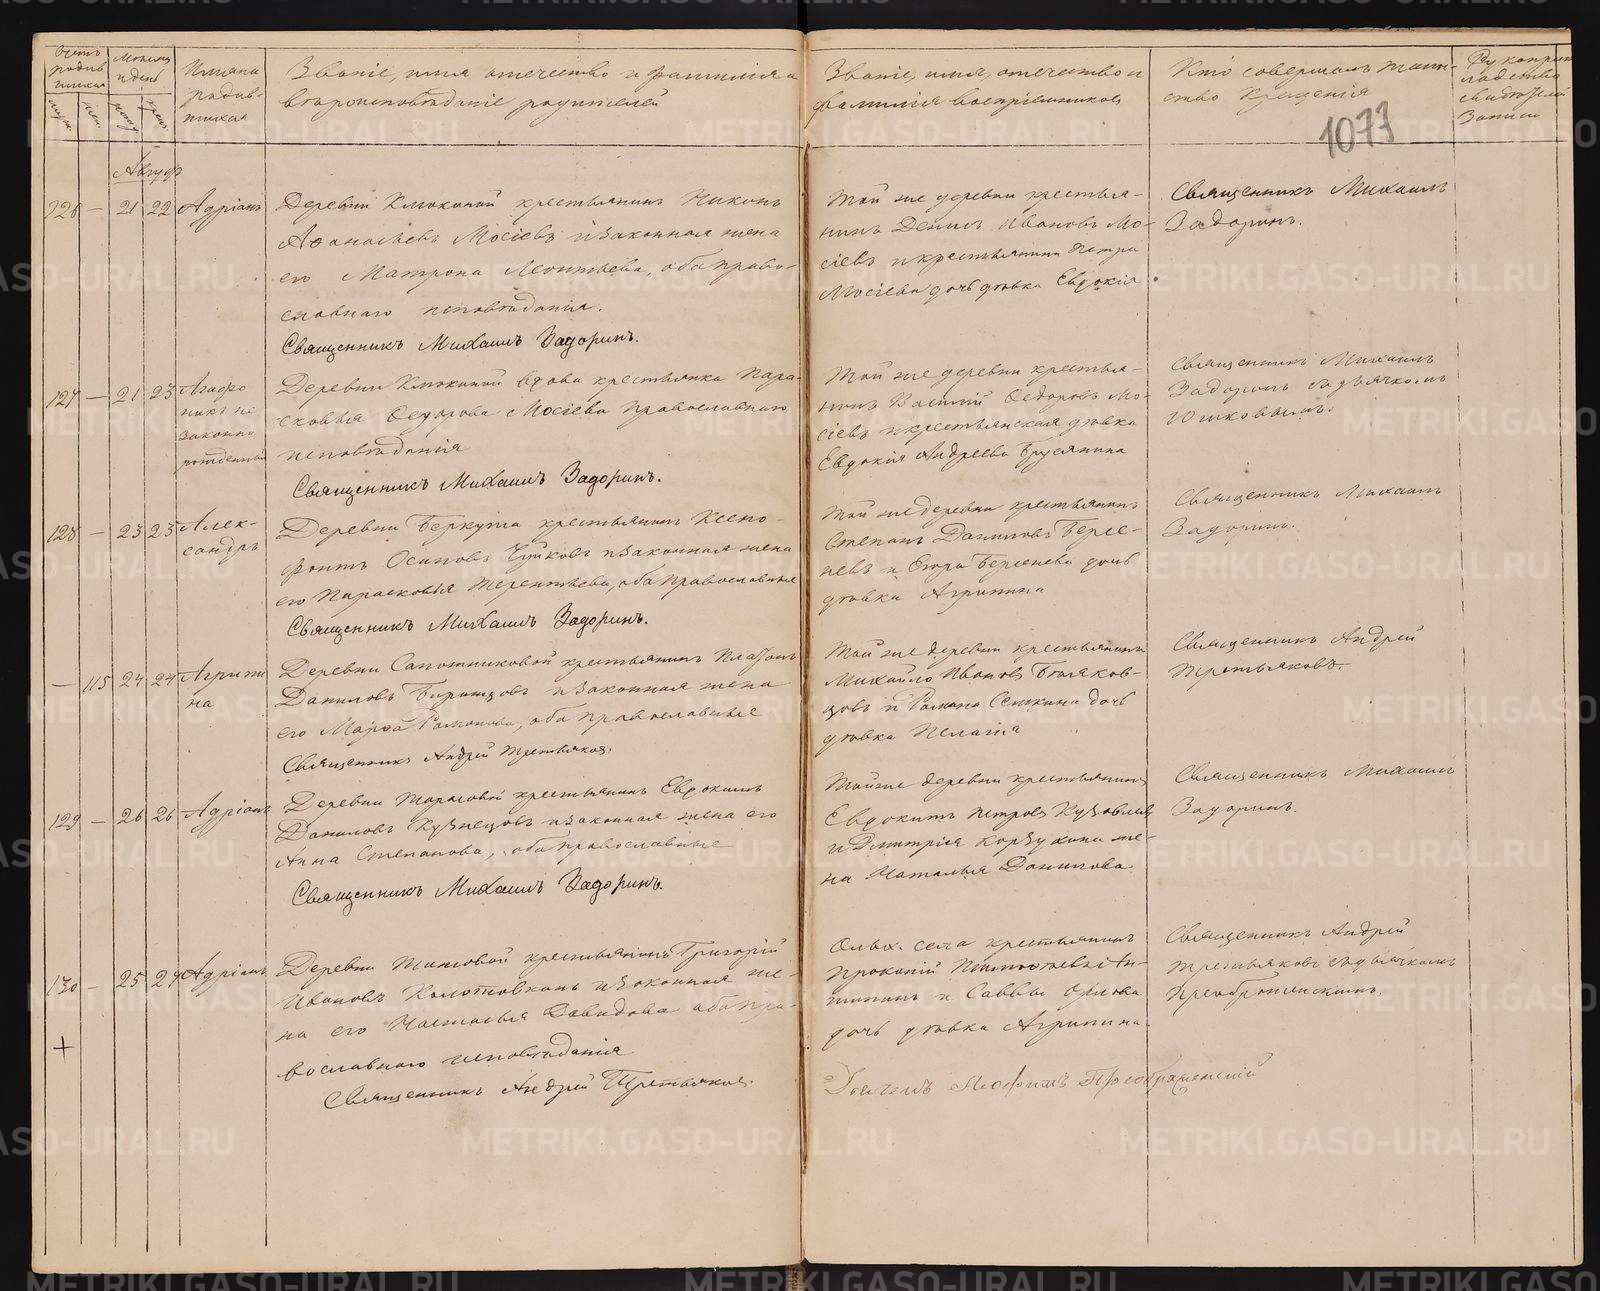 Счетъ родив шихся
Мѣсяц и день
Имяна родив- шихся
муж.
жен.
рожд.
крещ.
Званіе, имя отечество и фамилія и
вѣроисповѣданіе родителей
Званіе, имя, отечество и
фамилія воспріемниковъ
Кто совершалъ таин-
ство Крещенія
Рукоприк
ладство
свидѣтелей
Записи
1073
Август
126 — 21 22 Адріанъ
Деревни Клюкиной крестьянинъ Никонъ
Аѳанасьевъ Мосіевъ и законная жена
его Матрона Леонтьева, оба право-
славнаго исповѣданія.
Священникъ Михаилъ Задоринъ.
Той же деревни крестья-
нинъ Денисъ Ивановъ Мо-
сіевъ и крестьянина Петра
Мосіева дочь дѣвка Евдокія
Священникъ Михаилъ
Задоринъ.
127 — 21 23 Агафо
никъ не
законно
рожденный
Деревни Клюкиной вдова крестьянка Пара-
сковья Ѳедорова Мосіева православнаго
исповѣданія
Священникъ Михаилъ Задоринъ.
Той же деревни крестья-
нинъ Василій Ѳедоровъ Мо-
сіевъ и крестьянская дѣвка
Евдокія Андреева Бруснина
Священникъ Михаилъ
Задоринъ съ дьячкомъ
128 — 23 23 Алек-
сандръ
Деревни Беркута крестьянинъ Ксено-
фонтъ Осиповъ Чуйковъ и законная жена
его Парасковья Терентьева, оба православные
Священникъ Михаилъ Задоринъ.
Той же деревни крестьянинъ
Степанъ Даниловъ Берсе-
невъ и Егора Берсенева дочь
дѣвка Агрипина
Священникъ Михаилъ
Задоринъ.
— 115 24 24 Агрипи
на
Деревни Сапожниковой крестьянинъ Платонъ
Даниловъ и законная жена
его Марфа Романова, оба православные
Священникъ Андрей Третьяковъ.
Той же деревни крестьянинъ
Михайло Ивановъ Беляков-
цовъ и Романа Семкина дочь
дѣвка Пелагія
Священникъ Андрей
Третьяковъ
129 — 26 26 Адріанъ
Деревни Тарасовой крестьянинъ Евдокимъ
Даниловъ Кузнецовъ и законная жена его
Анна Степанова, оба православные
Священникъ Михаилъ Задоринъ.
Той же деревни крестьянинъ
Евдокимъ Петровъ Кузовлев
и Дмитрія Корзухина же-
на Наталья Данилова
Священникъ Михаилъ
Задоринъ.
130 — 25 27 Адріанъ
+
Деревни Титовой крестьянинъ Григорій
Ивановъ Колотовкинъ и законная же-
на его Настасья Давидова оба пра-
вославнаго исповѣданія
Священникъ Андрей Третьяковъ.
Ольх. села крестьянинъ
Прокопій Тимоѳеевъ Ан-
типинъ и Саввы Орлова
дочь дѣвка Агрипина.
Священникъ Андрей
Третьяковъ съ дьячкомъ
Преображенскимъ.
Дьячекъ Преображенскій
METRIKI.GASO-URAL.RU